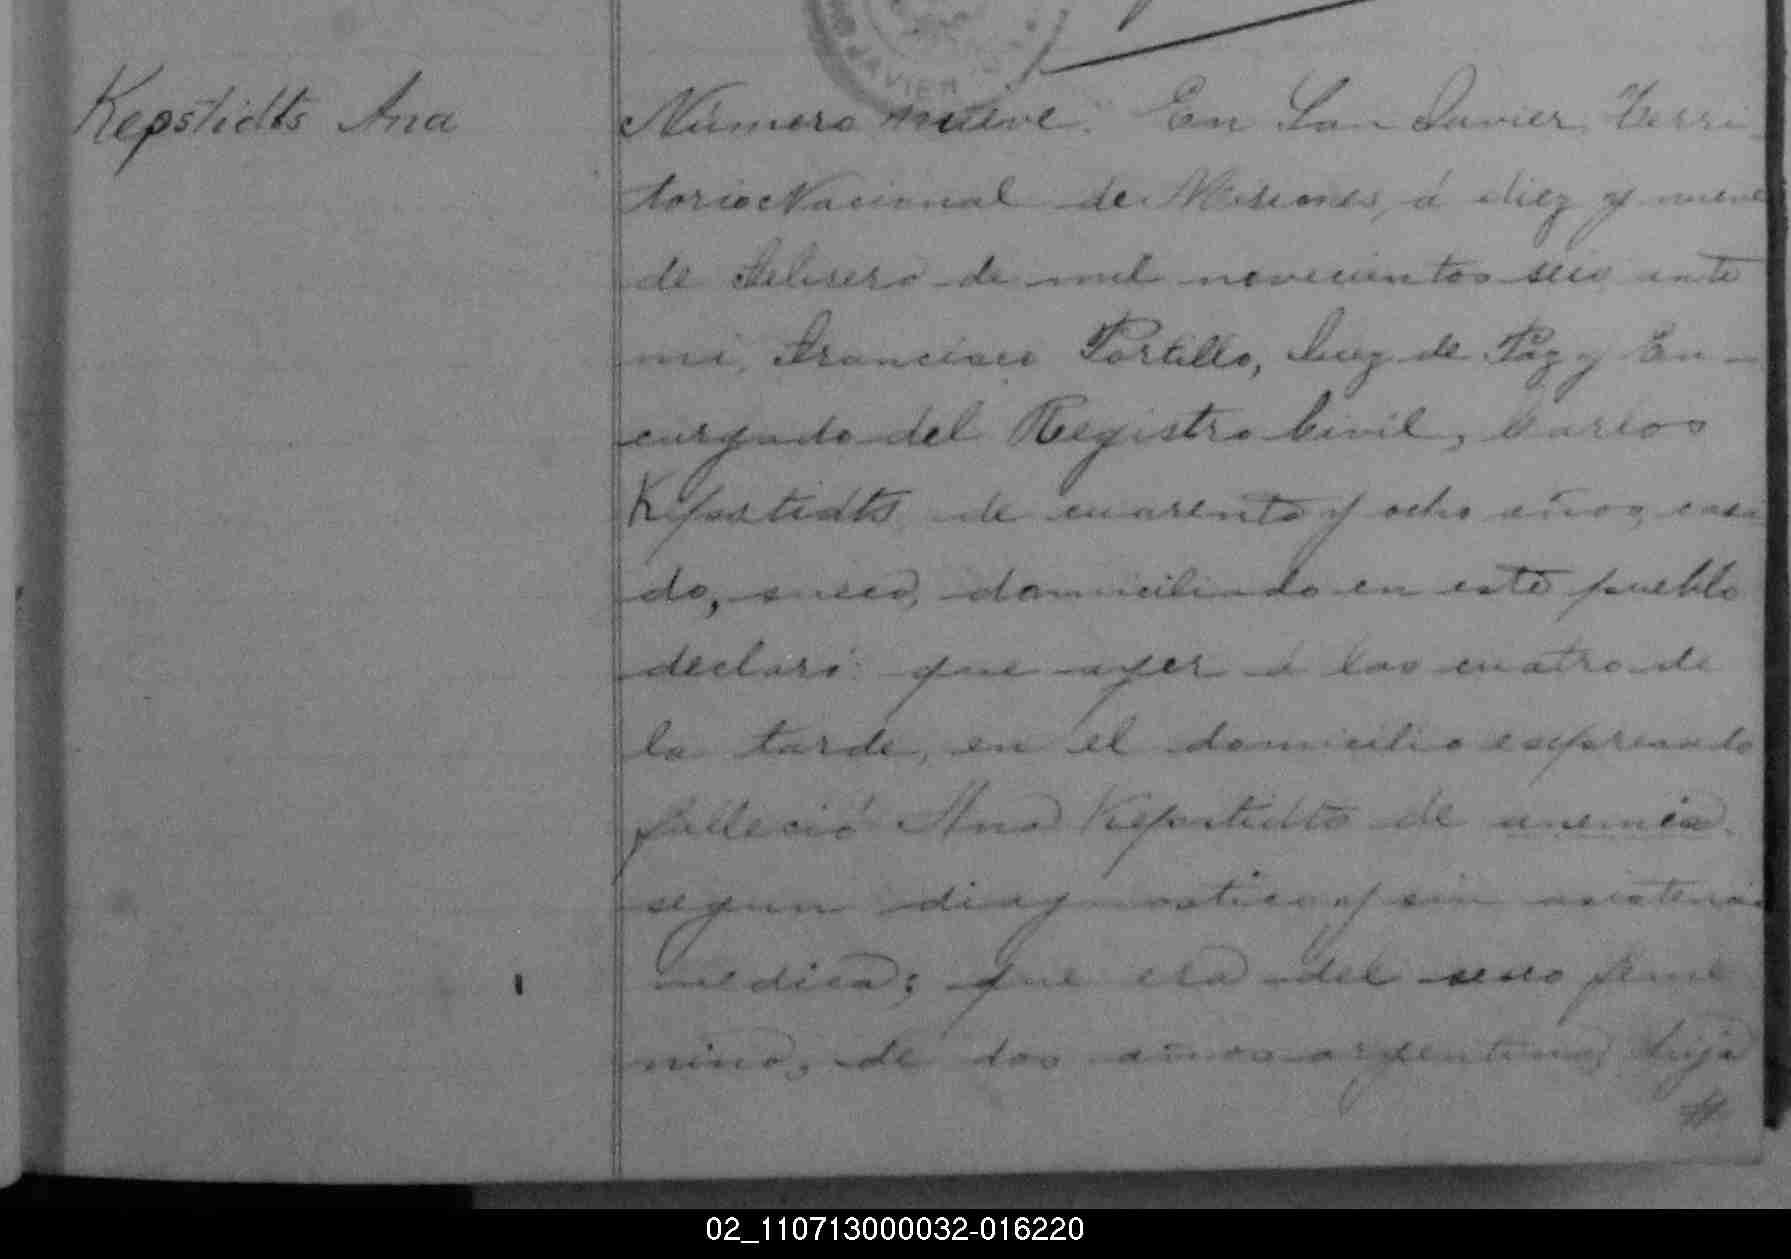 JAVIER
Kepstidts Ana
Número nueve. En San Javier, Terri
torio Nacional de Misiones, á diez y nueve
de Febrero de mil novecientos seis ante
mi, Francisco Portillo, Juez de Paz y En-
cargado del Registro Civil, Carlos
Kepstidts de cuarenta y ocho años, casa
do, sueco, domiciliado en este pueblo
declaró: que ayer á las cuatro de
la tarde, en el domicilio expresado
falleció Ana Kepstidts de anemia
segun diagnostico y sin asistencia
medica; que era del sexo feme
nino, de dos años argentina, hija
02_110713000032-016220